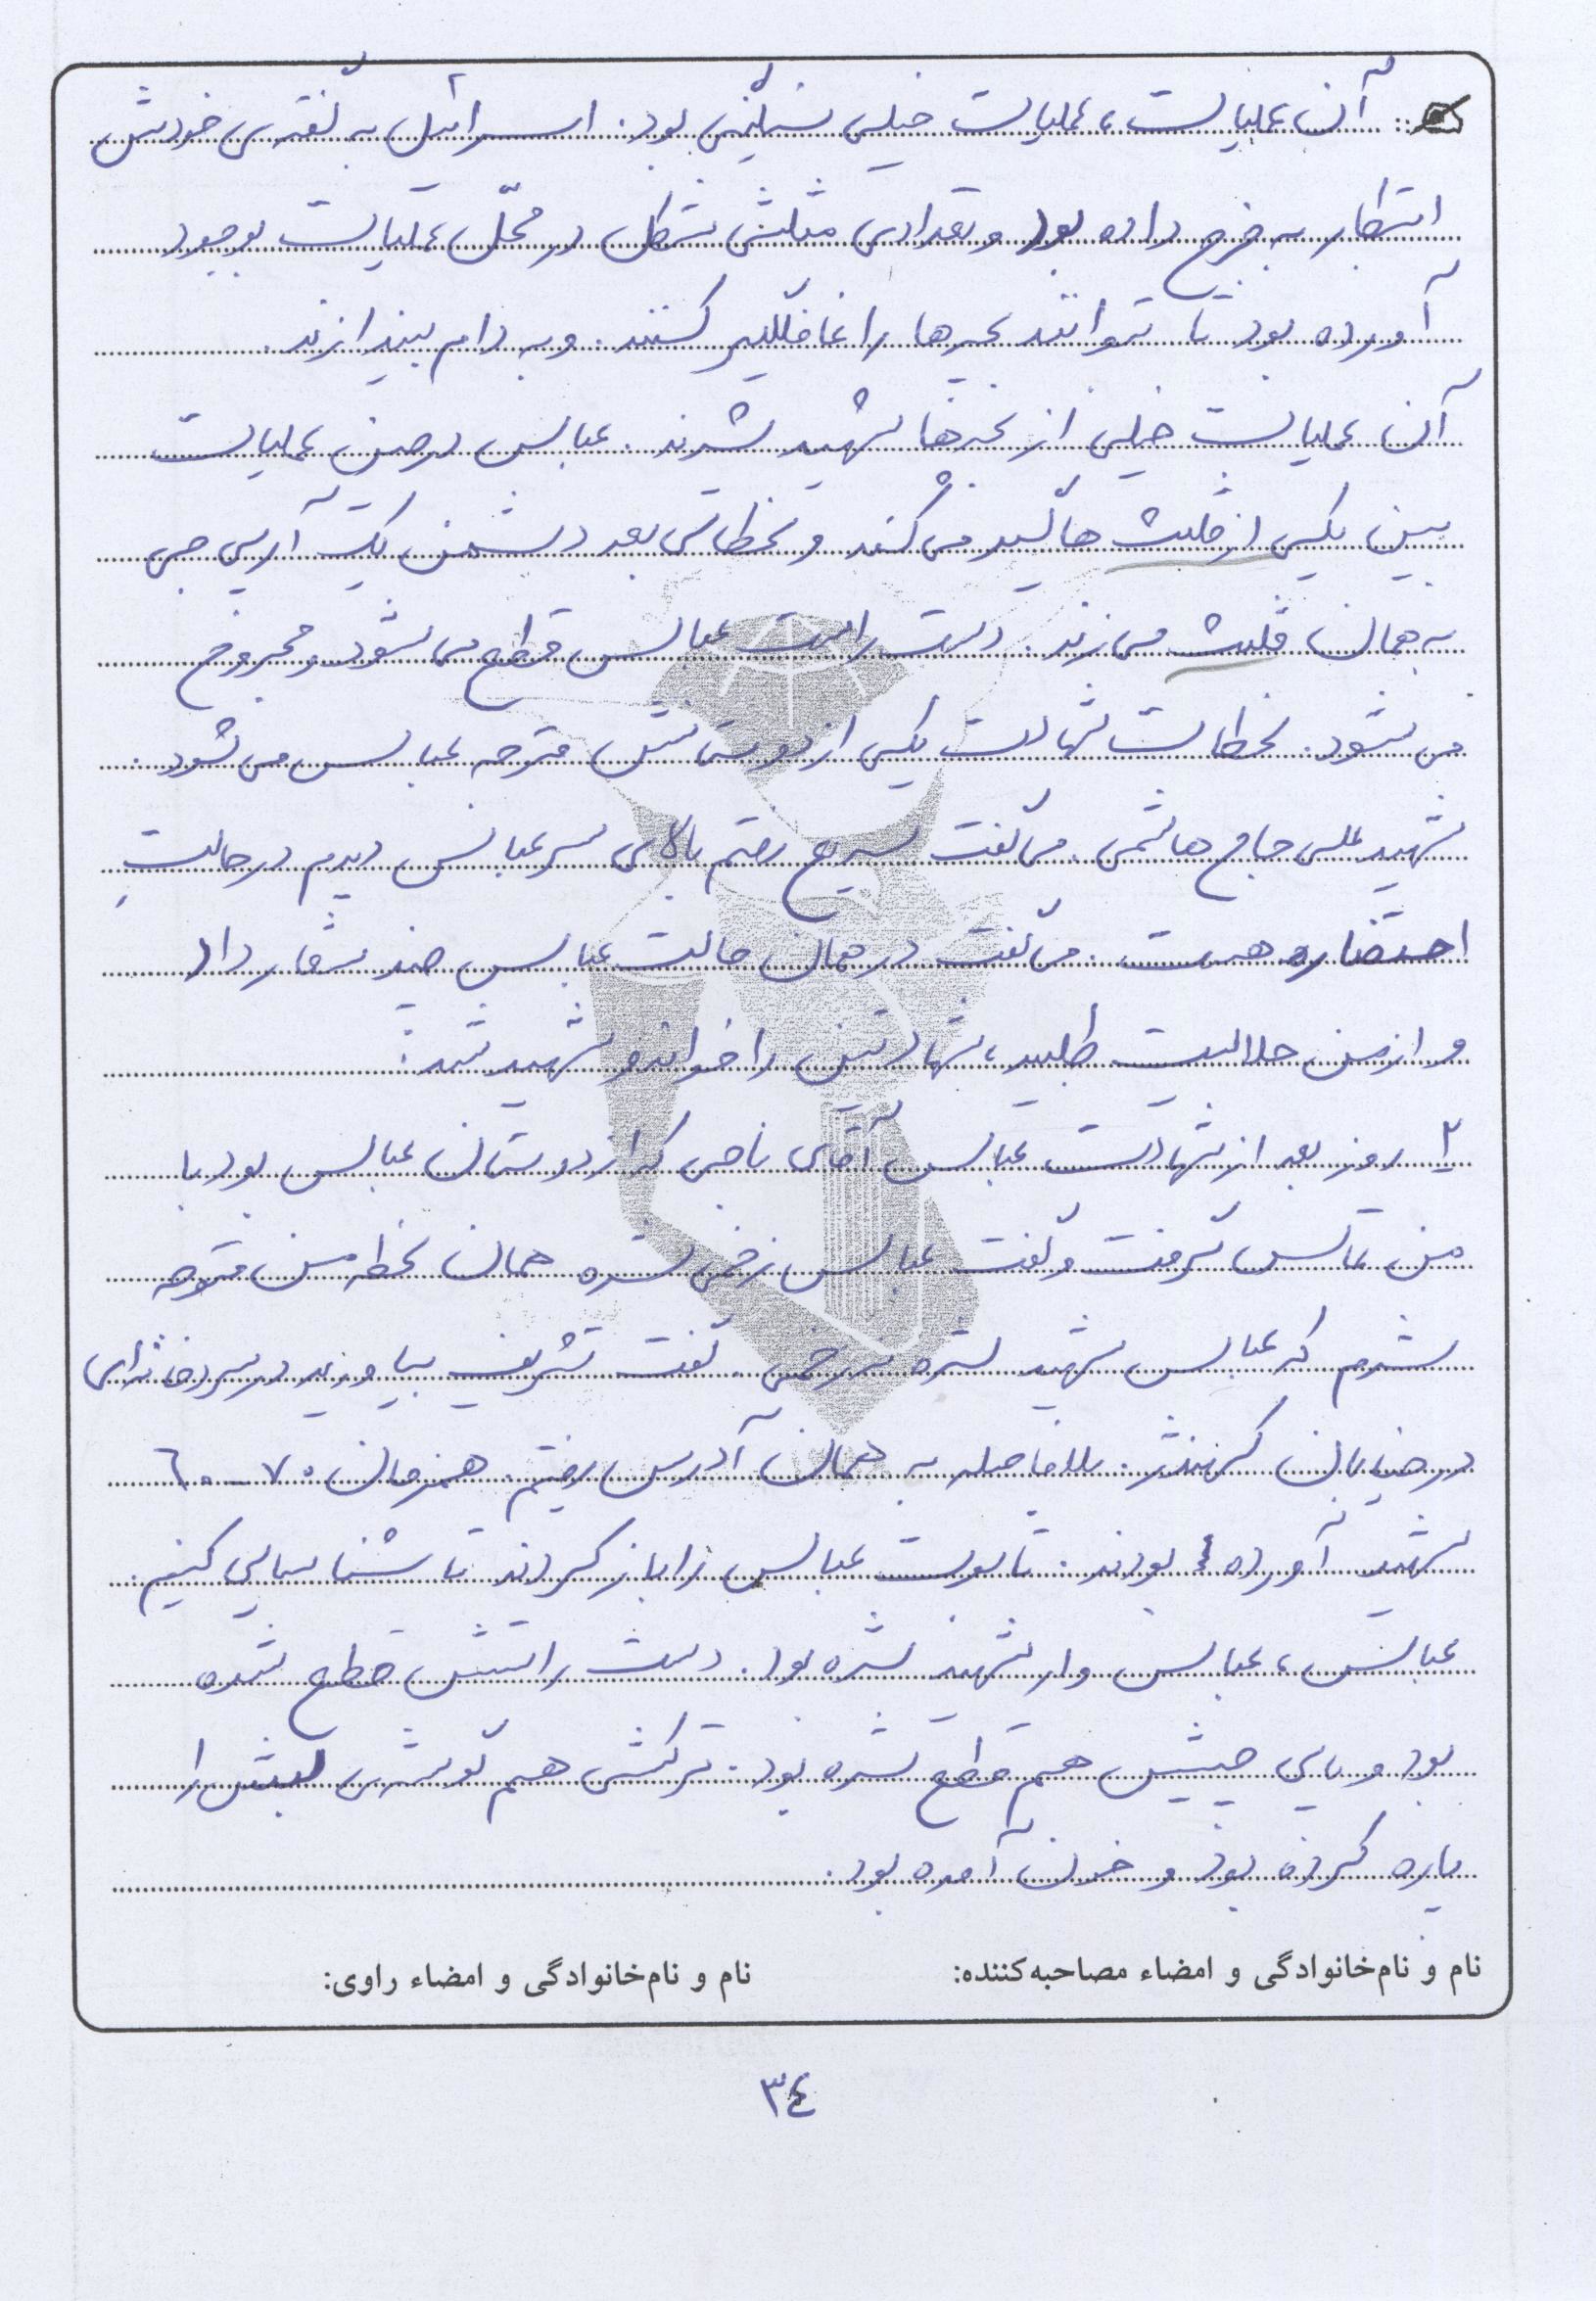 آن عملیات، عملیات خیلی سنگینی بود. اسرائیل به گفته‌ی خودش
ابتکار به خرج داده بود و تعدادی مثلثی شکل در محل عملیات بوجود
آورده بود تا بتوانند بچه‌ها را غافلگیر کنند. و به دام بیندازند.
آن عملیات خیلی از بچه‌ها شهید شدند. عباس در حین عملیات
بین یکی از مثلث ها گیر می کند و لحظاتی بعد دشمن یک آرپی جی
به همان مثلث می زند. دست راست عباس قطع می شود و مجروح
می شود. لحظات شهادت یکی از دوستانش متوجه عباس می شود.
شهید علی جامع هاشمی. می گفت سریع رفتم بالای سر عباس دیدم در حالتِ
احتضاره هست. می گفت در همان حالت عباس چند شعار داد
و از من حلالیت طلبید، شهادتین را خواند و شهید شد.
۲ روز بعد از شهادت عباس آقای ناجی که از دوستان عباس بود با
من تماس گرفت و گفت عباس زخمی شده همان لحظه من متوجه
شدم که عباس شهید شده نه زخمی. گفت تشریف بیاورید در سردخانه‌ای
در خیابان کهندژ. بلافاصله به همان آدرس رفتیم. همزمان ۷۰ــ۶۰
شهید آورده بودند. تابوت عباس را باز کردند تا شناسایی کنیم.
عباس، عباس وار شهید شده بود. دست راستش قطع شده
بود و پای چپش هم قطع شده بود. ترکشی هم گوشه‌ی لبش را
پاره کرده بود و خون آمده بود.
نام و نام‌خانوادگی و امضاء مصاحبه‌کننده: نام و نام‌خانوادگی و امضاء راوی:
٣٤